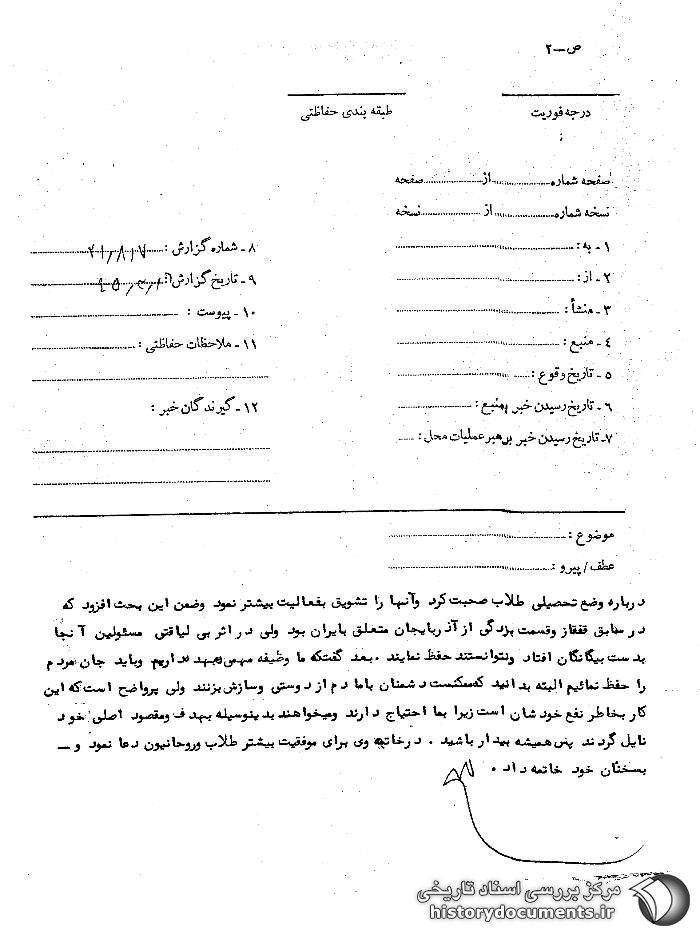 ص-۲
درجه فوریت
طبقه بندی حفاظتی
صفحه شماره ............ از ............ صفحه
نسخه شماره ............ از ............ نسخه
۱ - به :
۲ - از :
۳ - منشأ :
۴ - منبع :
۵ - تاریخ وقوع :
۶ - تاریخ رسیدن خبر بمنبع :
۷ - تاریخ رسیدن خبر برهبر عملیات محل :
۸ - شماره گزارش :
۹ - تاریخ گزارش :
۱۰ - پیوست :
۱۱ - ملاحظات حفاظتی :
۱۲ - گیرندگان خبر :
موضوع :
عطف / پیرو :
درباره وضع تحصیلی طلاب صحبت کرد وآنها را تشویق بفعالیت بیشتر نمود وضمن این بحث افزود که
در سابق قفقاز وقسمت بزرگی از آذربایجان متعلق بایران بود ولی در اثر بی لیاقتی مسئولین آنجا
بدست بیگانگان افتاد ونتوانستند حفظ نمایند . بعد گفت که ما وظیفه مهمی بعهده داریم وباید جان مردم
را حفظ نمائیم البته بدانید که ممکنست دشمنان باما دم از دوستی وسازش بزنند ولی پرواضح است که این
کار بخاطر نفع خودشان است زیرا بما احتیاج دارند ومیخواهند بدینوسیله بهدف ومقصود اصلی خود
نایل گردند پس همیشه بیدار باشید . درخاتمه وی برای موفقیت بیشتر طلاب وروحانیون دعا نمود و ــ
بسخنان خود خاتمه داد .
مرکز بررسی اسناد تاریخی
historydocuments.ir